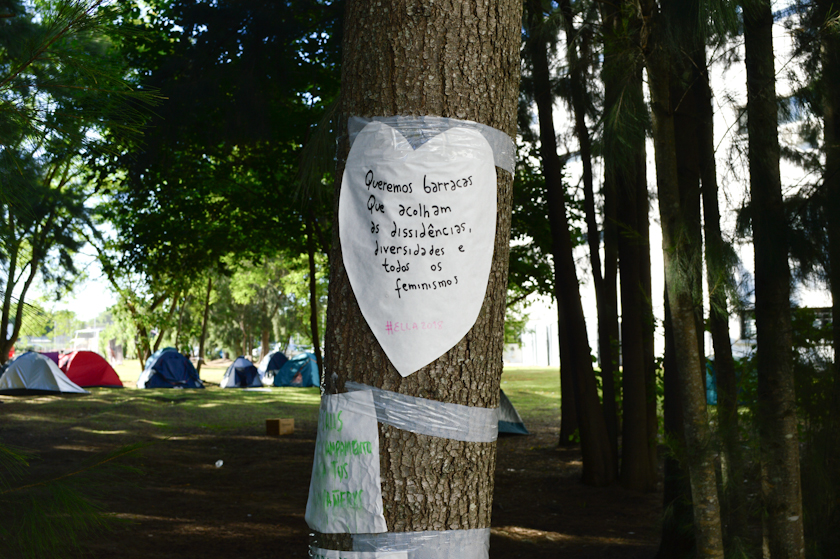 Queremos barracas
Que acolham
as dissidências,
diversidades e
todos os
feminismos
#ELLA2018
TUS